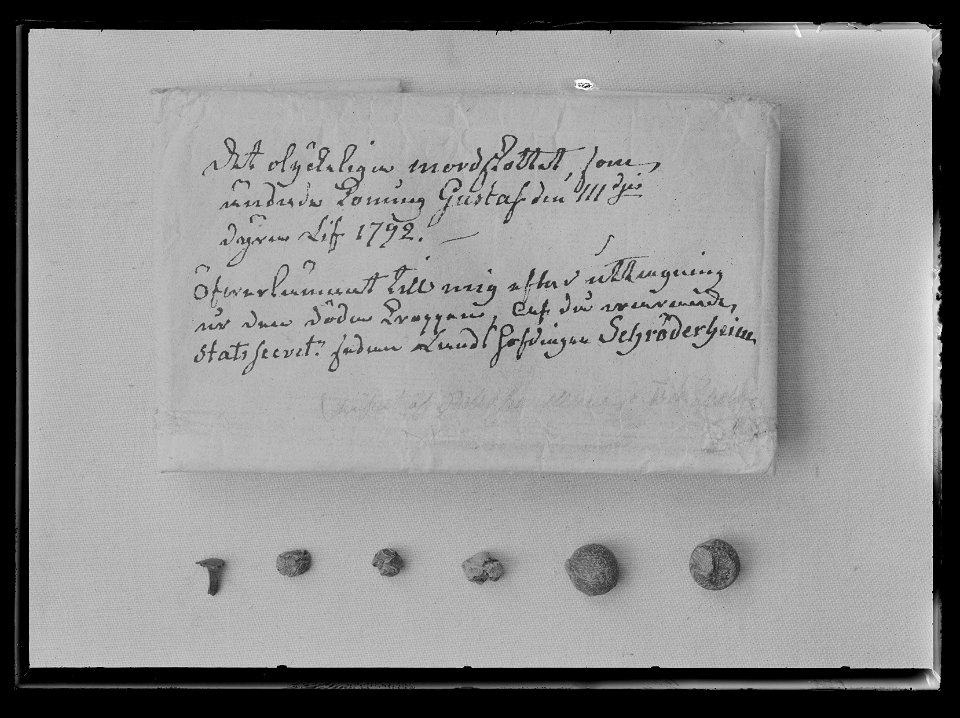 Det olyckeliga mordskottet, som,
ändade Konung Gustaf den III dje
dyra Lif 1792. —
Öfverlämnat till mig efter uttagning
ur den döda kroppen, af då varande,
Statssecret: sedan Landshöfdingen Schröderheim,